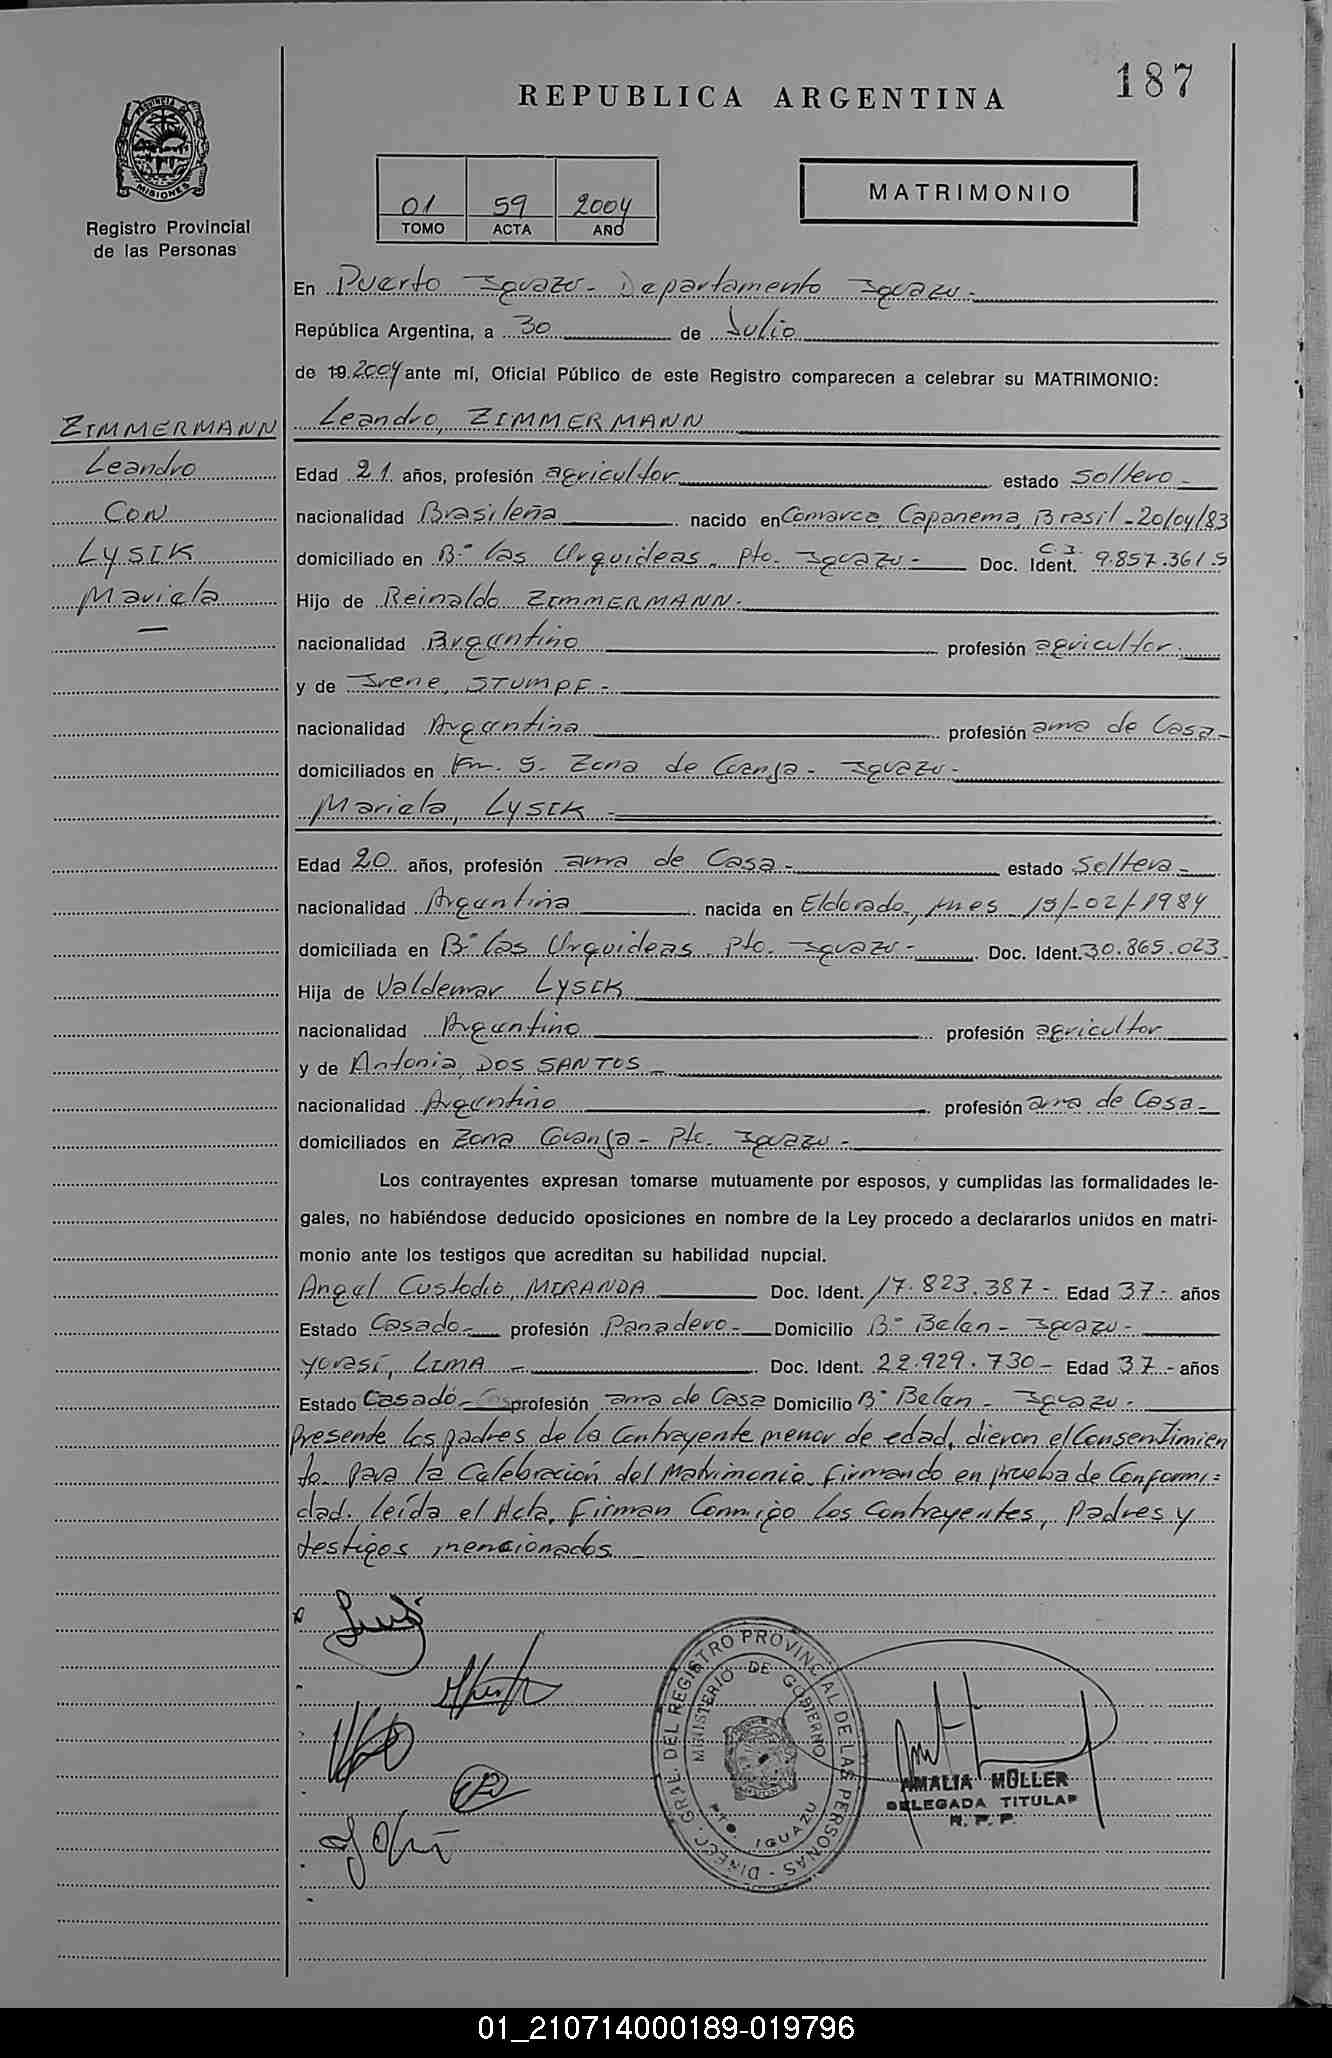 187
REPUBLICA ARGENTINA
PROVINCIA DE MISIONES
Registro Provincial
de las Personas
01 59 2004
TOMO ACTA AÑO
MATRIMONIO
En Puerto Iguazu - Departamento Iguazu -
República Argentina, a 30 de Julio
de 19 2004 ante mí, Oficial Público de este Registro comparecen a celebrar su MATRIMONIO:
ZIMMERMANN
Leandro
CON
LYSIK
Mariela
Leandro, ZIMMERMANN
Edad 21 años, profesión agricultor estado Soltero -
nacionalidad Brasileña nacido en Comarca Capanema, Brasil - 20/04/83
domiciliado en B° las Urquideas. Pto. Iguazu - Doc. Ident. C.I. 9.857.361.5
Hijo de Reinaldo ZIMMERMANN -
nacionalidad Argentino profesión agricultor -
y de Irene, STUMPF -
nacionalidad Argentina profesión ama de Casa -
domiciliados en Km. 5 - Zona de Granja - Iguazu -
Mariela, LYSIK -
Edad 20 años, profesión ama de Casa - estado Soltera -
nacionalidad Argentina nacida en Eldorado, Mnes - 15/-02/-1984
domiciliada en B° las Urquideas Pto. Iguazu - Doc. Ident. 30.865.023
Hija de Valdemar LYSIK
nacionalidad Argentino profesión agricultor
y de Antonia, DOS SANTOS -
nacionalidad Argentina profesión ama de Casa -
domiciliados en Zona Granja - Pto. Iguazu -
Los contrayentes expresan tomarse mutuamente por esposos, y cumplidas las formalidades le-
gales, no habiéndose deducido oposiciones en nombre de la Ley procedo a declararlos unidos en matri-
monio ante los testigos que acreditan su habilidad nupcial.
Angel Custodio, MIRANDA Doc. Ident. 17.823.387 - Edad 37 - años
Estado Casado - profesión Panadero - Domicilio B° Belen - Iguazu -
Yorasi, LIMA - Doc. Ident. 22.929.730 - Edad 37 - años
Estado Casado - profesión ama de Casa Domicilio B° Belen - Iguazu -
Presente los padres de la Contrayente menor de edad, dieron el Consentimien
to para la Celebración del Matrimonio firmando en prueba de Conformi=
dad. leida el Acta, Firman Conmigo los Contrayentes, Padres y
testigos mencionados -
DIRECC. GRAL. DEL REGISTRO PROVINCIAL DE LAS PERSONAS -
MINISTERIO DE GOBIERNO
PTO. IGUAZU
AMALIA MÜLLER
DELEGADA TITULAR
R. P. P.
01_210714000189-019796